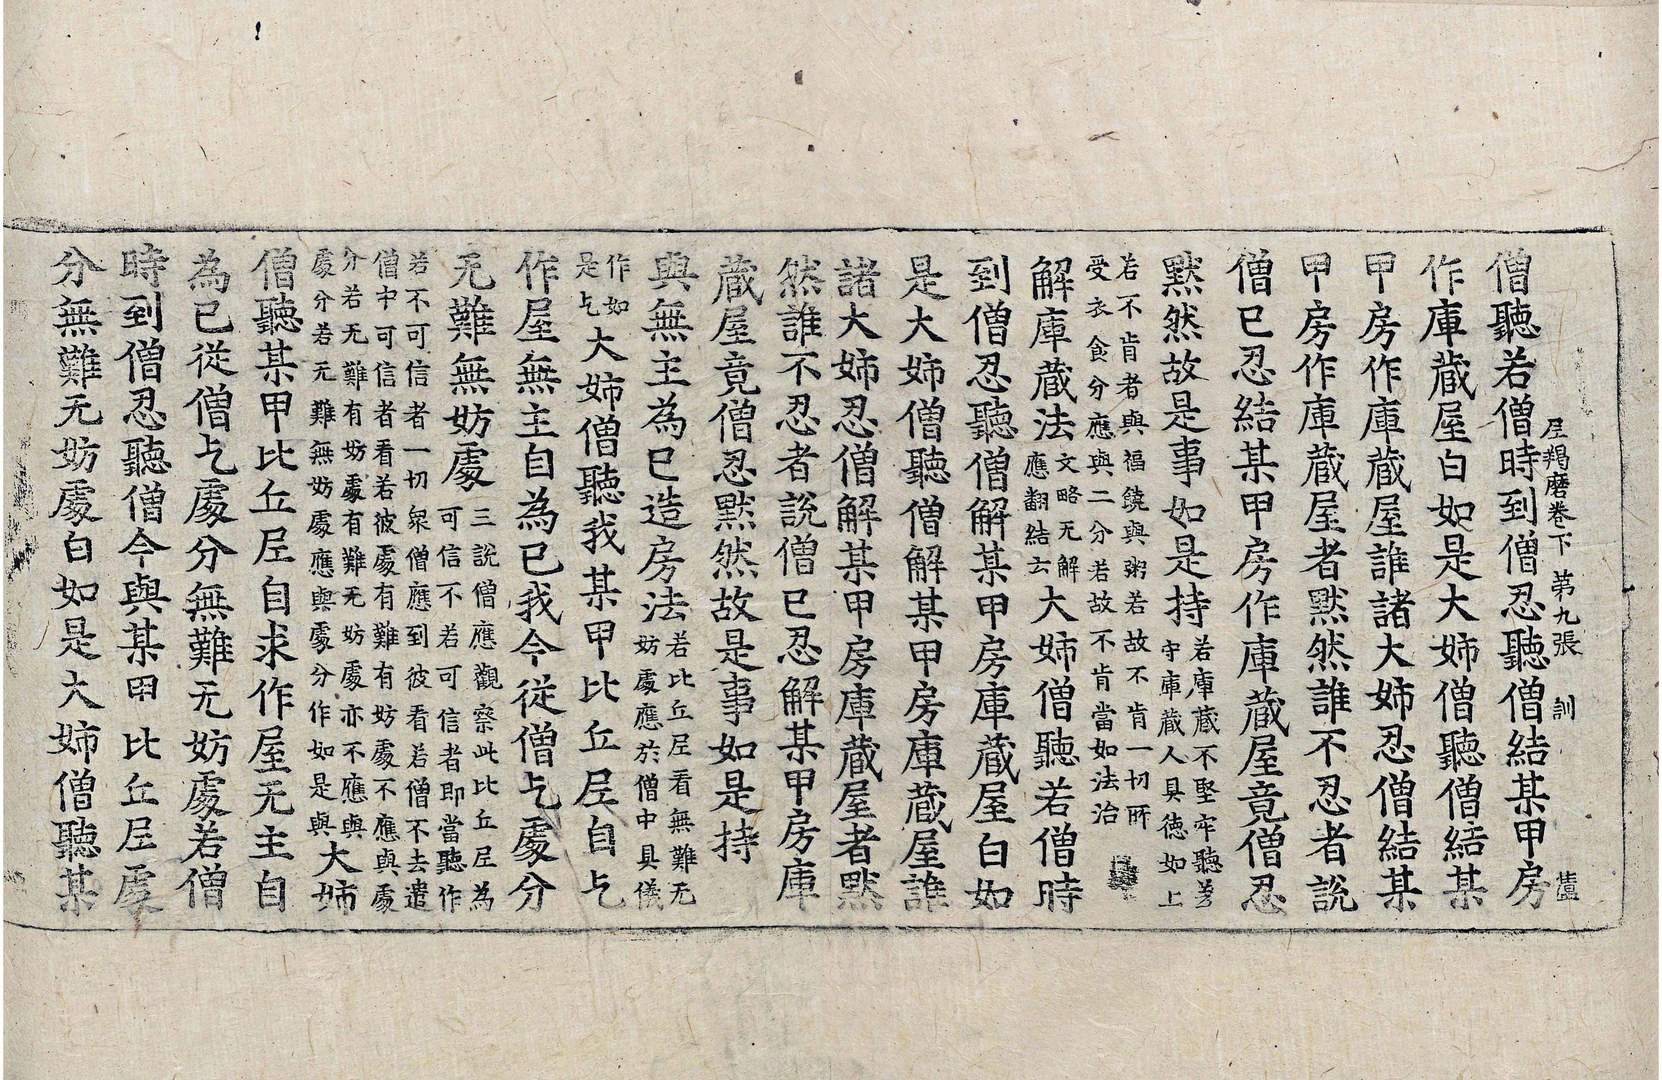 僧聽若僧時到僧忍聽僧結某甲房
尼羯磨卷下 第九張 訓
作庫藏屋白如是大姉僧聽僧結某
甲房作庫藏屋誰諸大姉忍僧結某
甲房作庫藏屋者黙然誰不忍者說
僧已忍結某甲房作庫藏屋竟僧忍
黙然故是事如是持若庫藏不堅牢聽差
守庫藏人具徳如上
若不肯者與福饒與粥若故不肯一切所
受衣食分應與二分若故不肯當如法治
解庫藏法文略无解
應翻結云大姉僧聽若僧時
到僧忍聽僧解某甲房庫藏屋白如
是大姉僧聽僧解某甲房庫藏屋誰
諸大姉忍僧解某甲房庫藏屋者黙
然誰不忍者說僧已忍解某甲房庫
藏屋竟僧忍黙然故是事如是持
與無主為已造房法若比丘尼看無難无
妨處應於僧中具儀
作如
是乞大姉僧聽我某甲比丘尼自乞
作屋無主自為已我今従僧乞處分
无難無妨處三說僧應觀察此比丘尼為
可信不若可信者即當聽作
若不可信者一切衆僧應到彼看若僧不去遣
僧中可信者看若彼處有難有妨處不應與處
分若无難有妨處有難无妨處亦不應與
處分若无難無妨處應與處分作如是與大姉
僧聽某甲比丘尼自求作屋无主自
為已従僧乞處分無難无妨處若僧
時到僧忍聽僧今與某甲比丘尼處
分無難无妨處白如是大姉僧聽某